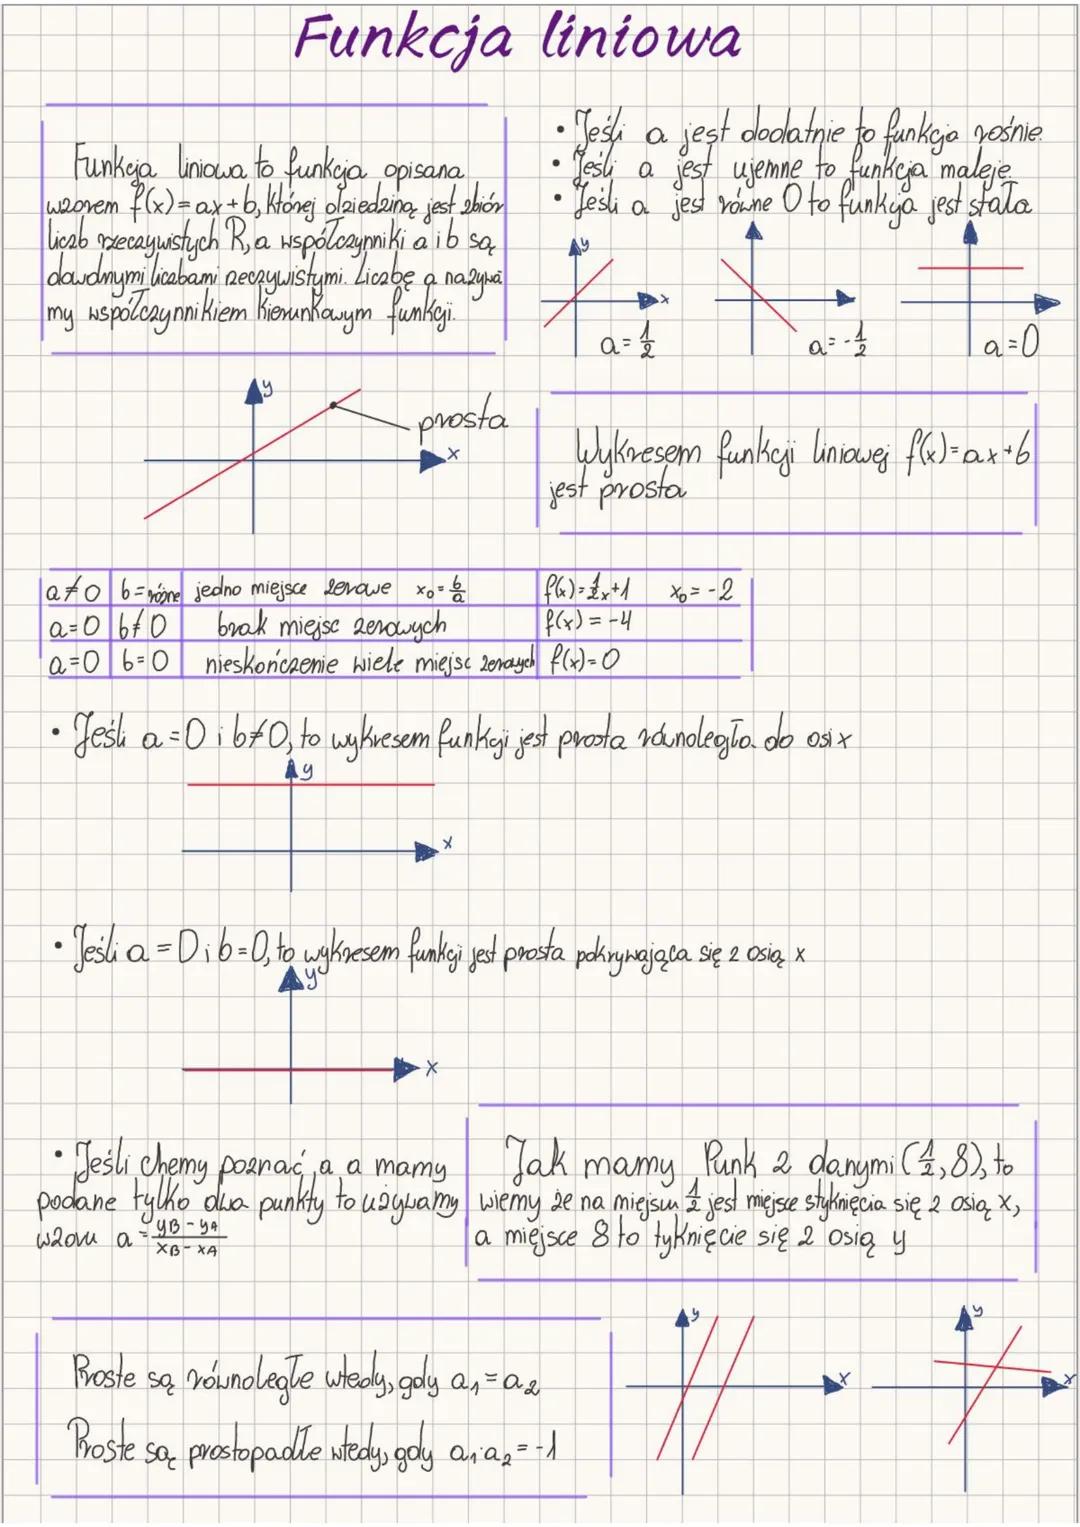 Funkcja liniowa
Funkcja liniowa to funkcja opisana
wzorem f(x)=ax+b, której dziedziną jest zbiór
liczb rzeczywistych R, a współczynniki a i b są
dowolnymi liczbami rzeczywistymi. Liczbę a nazywa
my współczynnikiem kierunkowym funkcji.
• Jeśli a jest dodatnie to funkcja rośnie.
• Jeśli a jest ujemne to funkcja maleje.
• Jeśli a jest równe 0 to funkcja jest stała
y
x
a=1/2
a=-1/2
a=0
y
prosta
x
Wykresem funkcji liniowej f(x)=ax+b
jest prosta
a≠0 b=różne jedno miejsce zerowe x₀=b/a f(x)=1/2x+1 x₀=-2
a=0 b≠0 brak miejsc zerowych f(x)=-4
a=0 b=0 nieskończenie wiele miejsc zerowych f(x)=0
• Jeśli a=0 i b≠0, to wykresem funkcji jest prosta równoległa do osi x
y
x
• Jeśli a=0 i b=0, to wykresem funkcji jest prosta pokrywająca się z osią x
y
x
• Jeśli chemy poznać a a mamy
podane tylko dwa punkty to używamy
wzoru a=yB-yA/xB-xA
Jak mamy Punk z danymi (1/2,8), to
wiemy że na miejscu 1/2 jest miejsce styknięcia się z osią x,
a miejsce 8 to tyknięcie się z osią y
Proste są równoległe wtedy, gdy a₁=a₂
Proste są prostopadłe wtedy, gdy a₁·a₂=-1
y
x
y
x